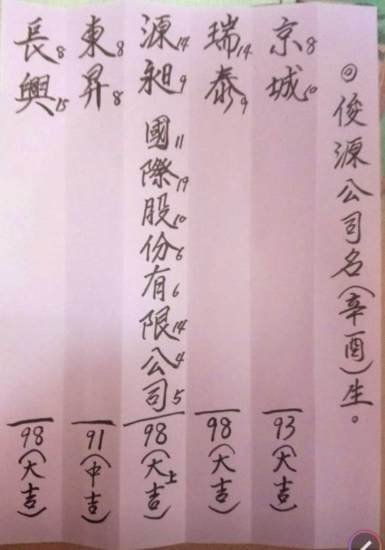 ◎俊源公司名(辛酉)生。
京8城10 93(大吉)
瑞14泰9 98(大吉)
源14昶9國11際19股10份6有6限14公4司5 98(大上吉)
東8昇8 91(中吉)
長8興15 98(大吉)